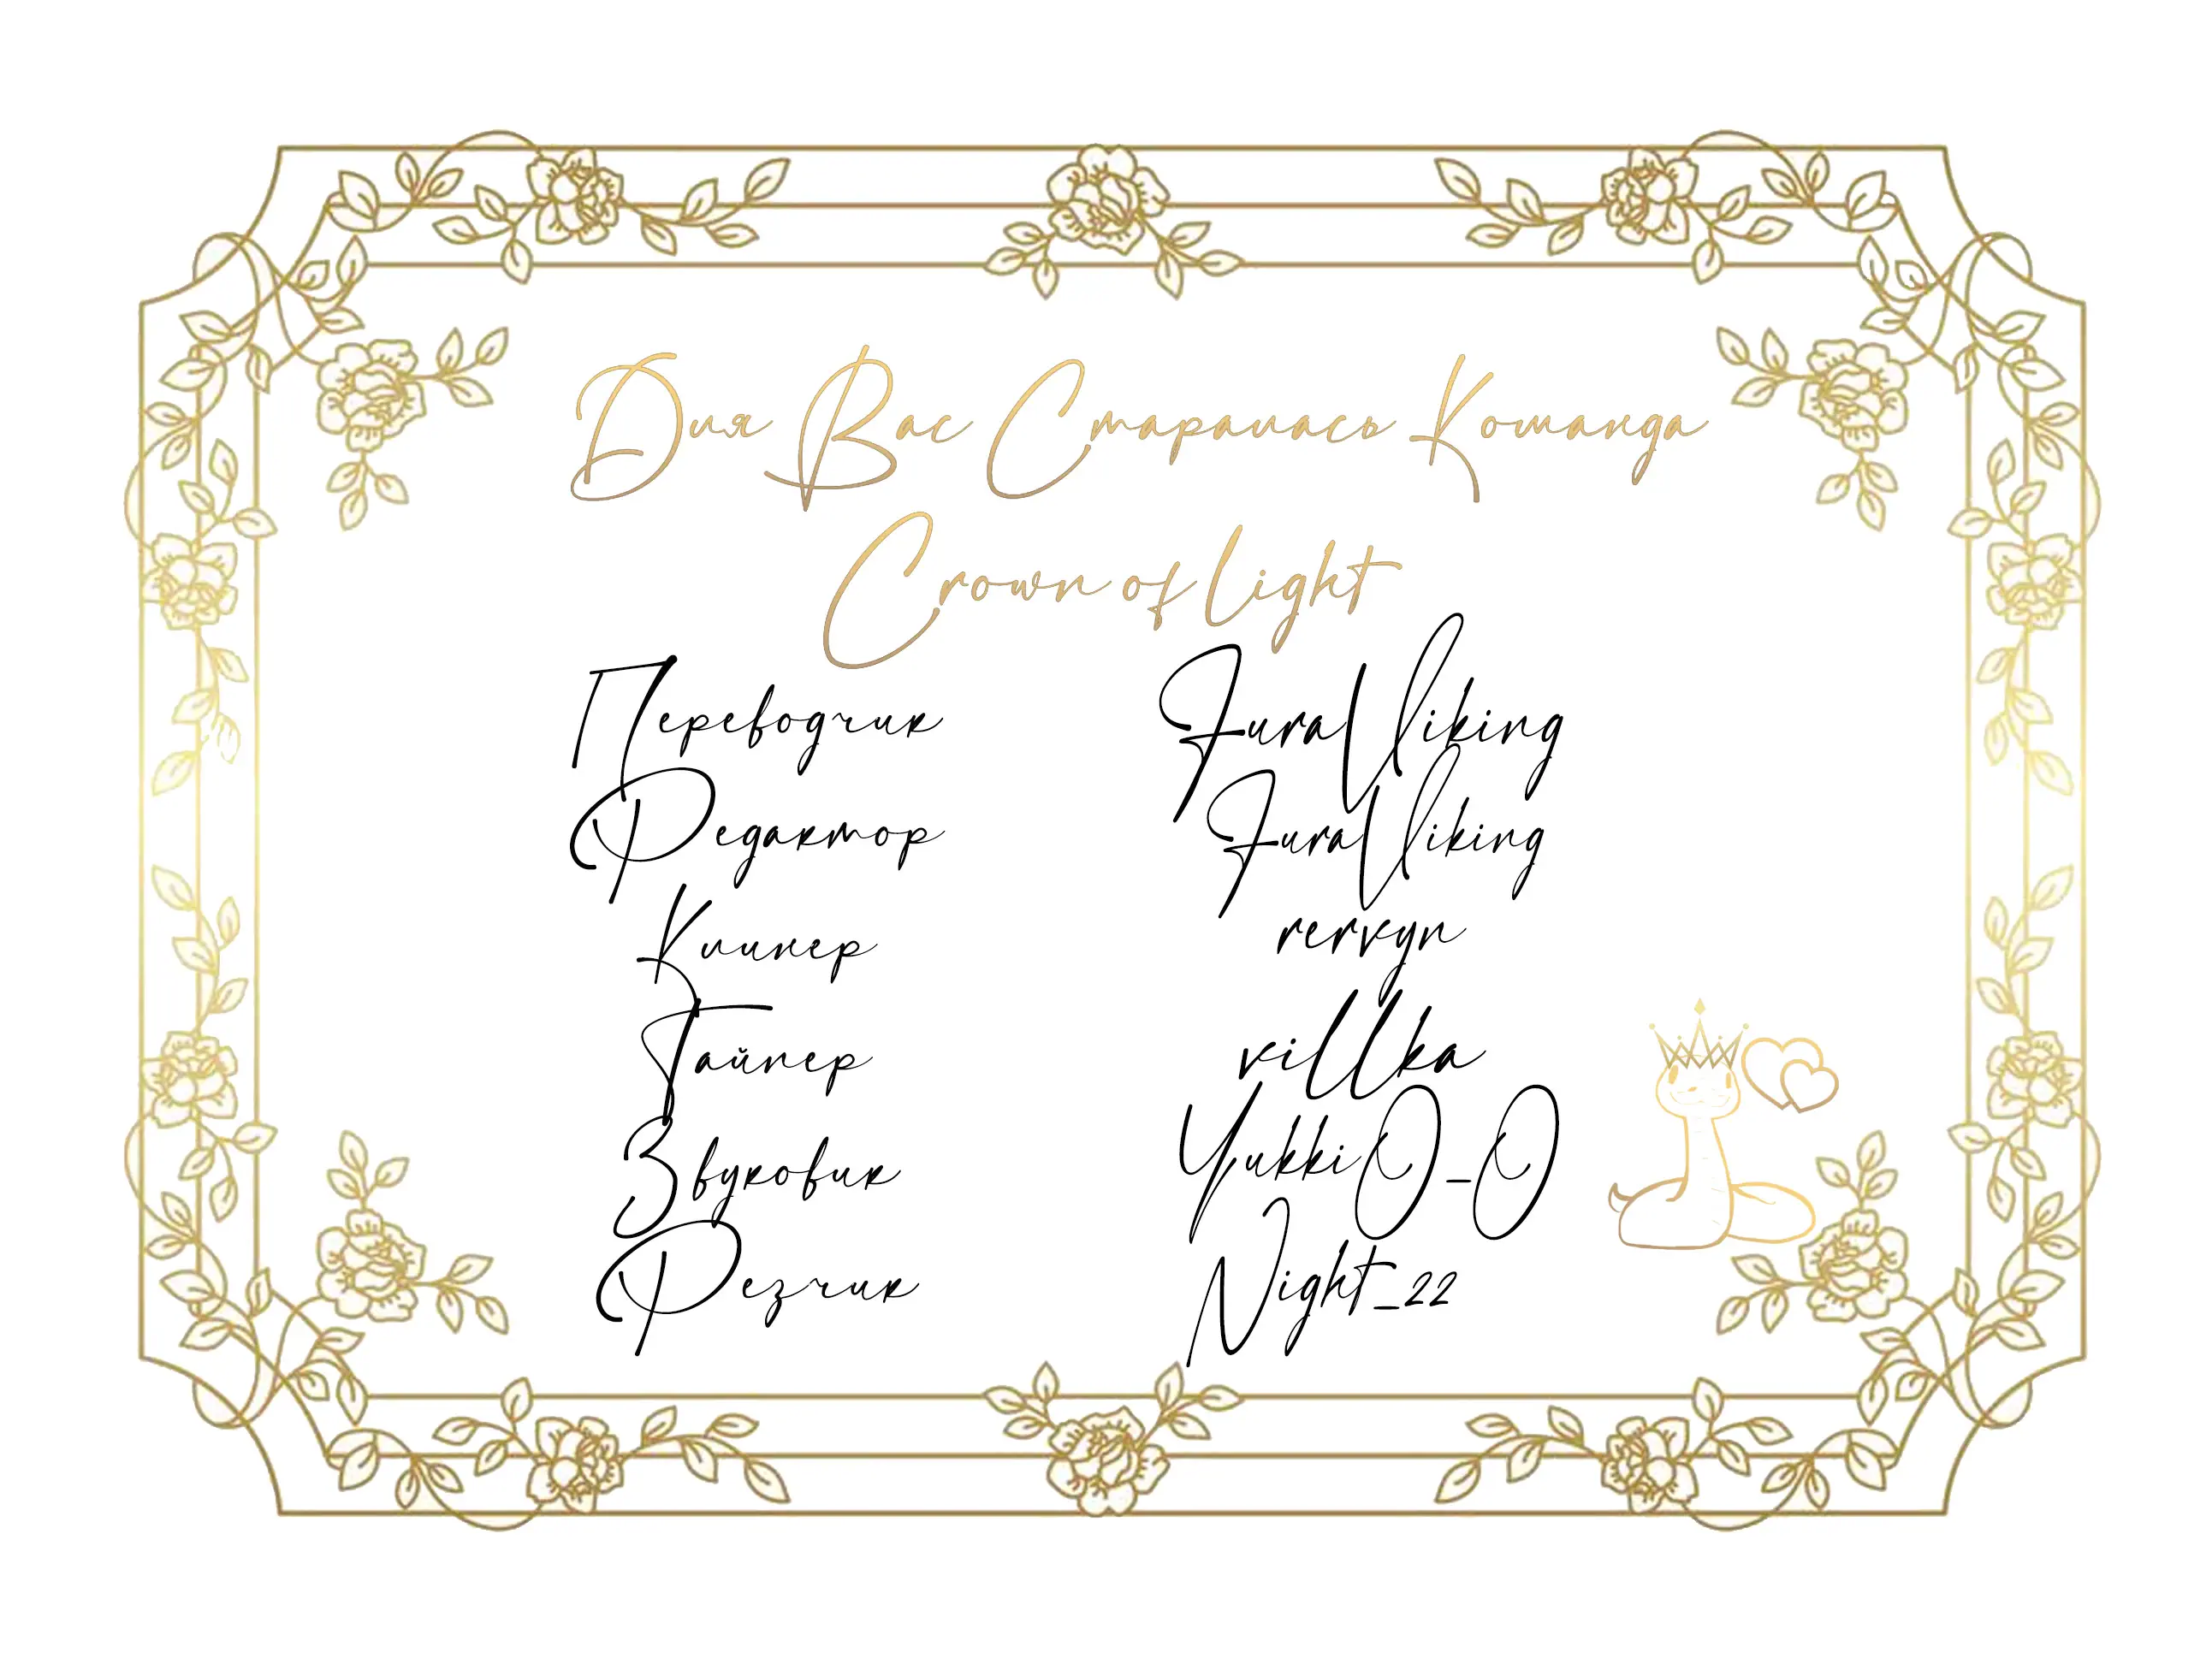 Для Вас Старалась Команда
Crown of light
Переводчик Fura Viking
Редактор Fura Viking
Клинер rervyn
Тайпер villka
Звуковик Yukki O-O
Резчик Night_22